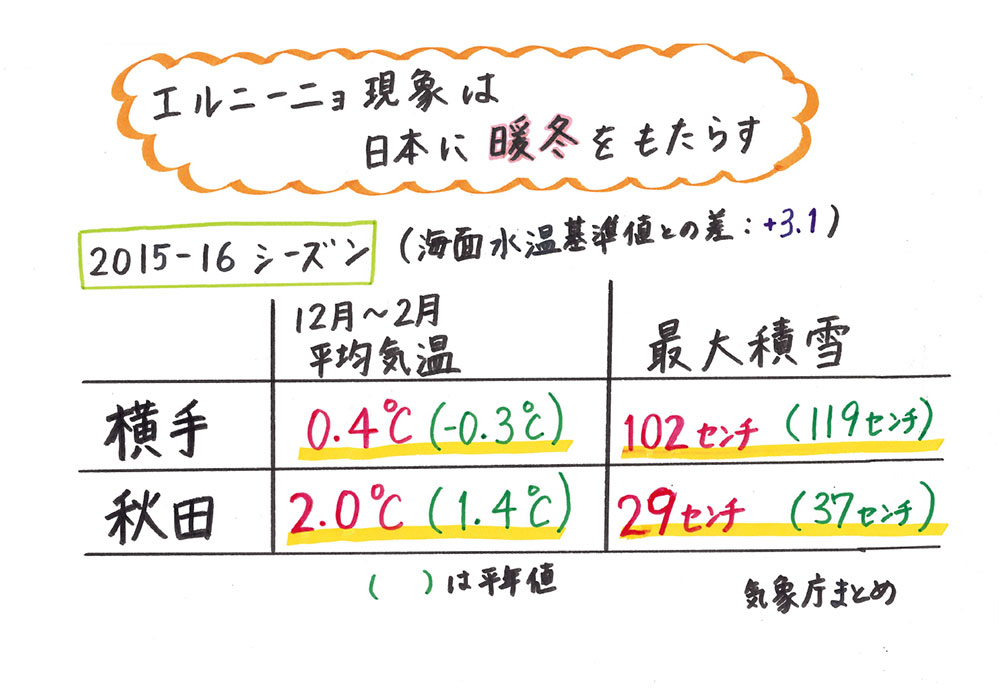 エルニーニョ現象は
日本に暖冬をもたらす
2015-16 シーズン (海面水温基準値との差:+3.1)
12月~2月
平均気温 最大積雪
横手 0.4℃ (-0.3℃) 102センチ (119センチ)
秋田 2.0℃ (1.4℃) 29センチ (37センチ)
( )は平年値 気象庁まとめ